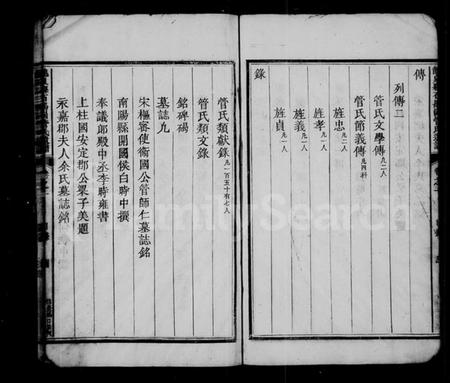 傳
列傳二
管氏文學傳凡二人
管氏節義傳凡四科
旌忠凡二人
旌孝凡一人
旌義凡一人
旌貞凡一人
錄
管氏類獻錄凡一百五十有七人
管氏類文錄
銘碑碣
墓誌九
宋樞密使衞國公管師仁墓誌銘
南陽縣開國侯白時中撰
奉議郎殿中丞李時雍書
上柱國安定郡公梁子美題
永嘉郡夫人余氏墓誌銘
FamilySearch